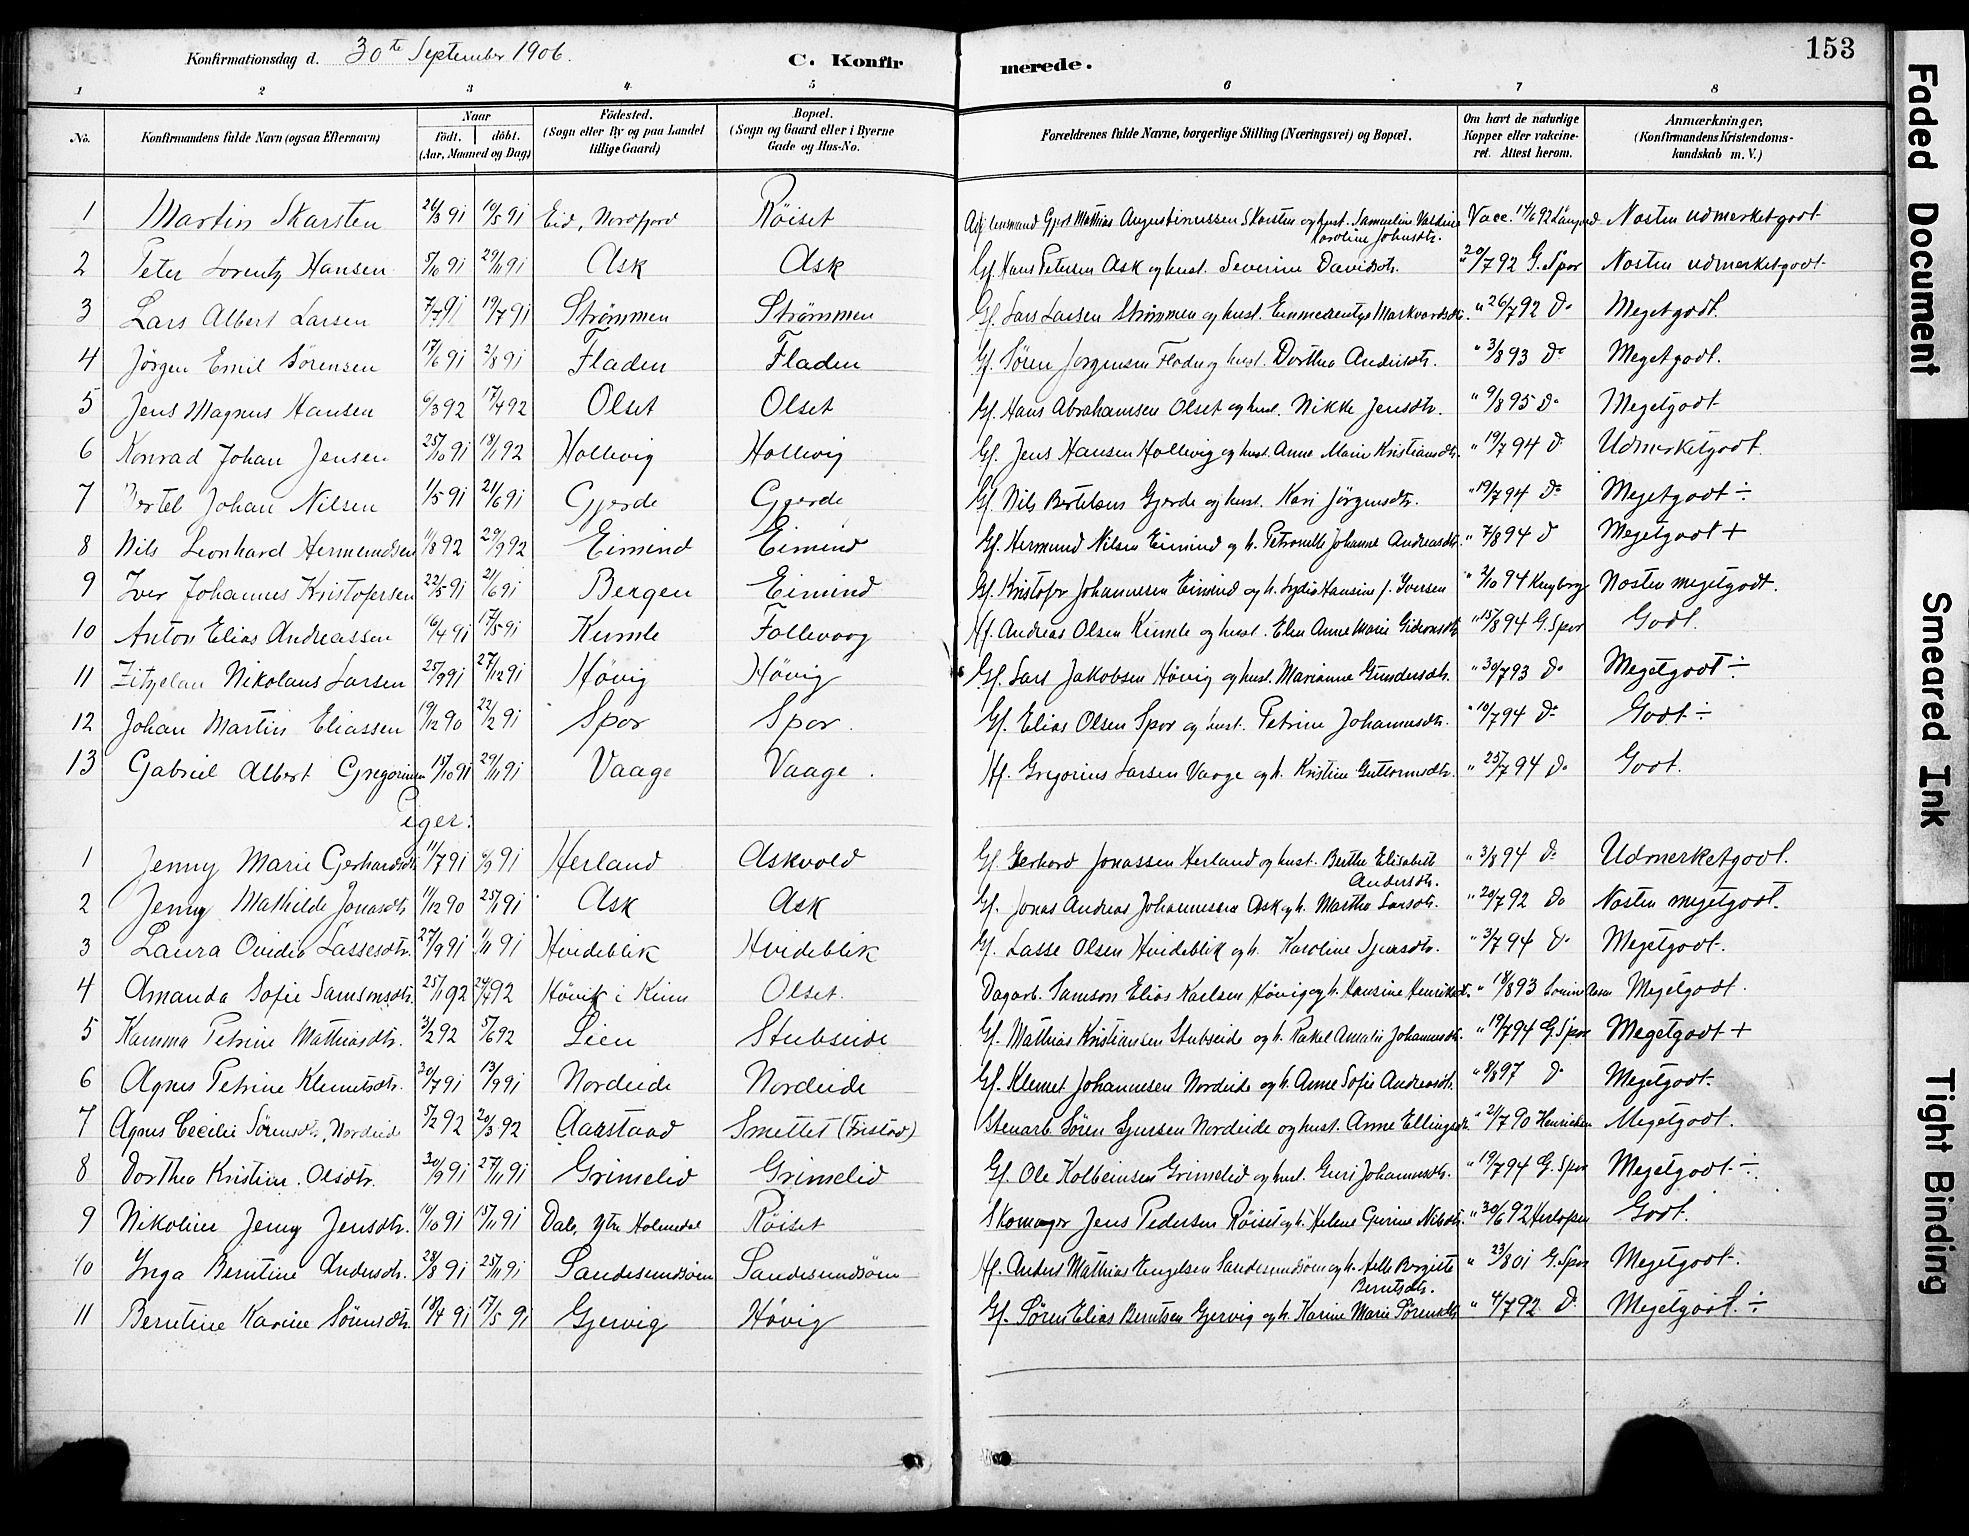 Konfirmationsdag d. 30te September 1906. C. Konfirmerede. 153
1 2 3 4 5 6 7 8
No. Konfirmandens fulde Navn (ogsaa Efternavn) Naar födt. döbt. (Aar, Maaned og Dag) Födested. (Sogn eller By og paa Landet tillige Gaard) Bopæl. (Sogn og Gaard eller i Byerne Gade og Hus-No. Forældrenes fulde Navne, borgerlige Stilling (Næringsvei) og Bopæl. Om havt de naturlige Kopper eller vakcineret. Attest herom. Anmærkninger, (Konfirmandens Kristendomskundskab m. V.)
1 Martin Skarsten 26/3 91 16/5 91 Eid, Nordfjord Røiset Gjert Mathias Augustinussen Skarsten og hust. Samueline Valdine Karoline Johnsdtr. Vacc. 14/6 92 Næsten udmerketgodt
2 Peter Lorentz Hansen 5/10 91 29/11 91 Ask Ask Gf. Hans Petersen Ask og hust. Severine Davidsdtr. " 20/7 92 G. Spor Næsten udmerketgodt
3 Lars Albert Larsen 7/7 91 19/7 91 Strømmen Strømmen Gf. Lars Larsen Strømmen og hust. Markvardsdtr. " 26/7 92 Do Megetgodt.
4 Jörgen Emil Sörensen 17/6 91 2/8 91 Fladen Fladen Gf. Sören Jörgensen Fladen og hust. Dorthea Andersdtr. " 3/8 93 Do Megetgodt.
5 Jens Magnus Hansen 6/3 92 17/4 92 Olset Olset Gf. Hans Abrahamsen Olset og hust. Nikke Jensdtr. " 9/8 95 Do Megetgodt
6 Konrad Johan Jensen 25/10 91 18/1 92 Hollevig Hollevig Gf. Jens Hansen Hollevig og hust. Anne Marie Kristiansdtr. " 19/7 94 Do Udmerketgodt.
7 Bertel Johan Nilsen 1/5 91 21/6 91 Gjerde Gjerde Gf. Nils Bertelsen Gjerde og hust. Kari Jörgensdtr. " 19/7 94 Do Megetgodt ÷
8 Nils Leonhard Hermundsen 11/8 92 29/9 92 Eimind Eimind Gf. Hermund Nilsen Eimind og h. Petronille Johanne Andreasdtr. " 7/8 94 Do Megetgodt +
9 Iver Johannes Kristofersen 22/5 91 21/6 91 Bergen Eimind Gf. Kristofer Johannesen Eimind og h. Lydia Hansine f. Iversen " 2/10 94 Næsten megetgodt.
10 Anton Elias Andreassen 16/4 91 17/5 91 Kumle Follevaag Hf. Andreas Olsen Kumle og hust. Elen Anne Marie Gideonsdtr. " 15/8 94 G. Spor Godt.
11 Nikolaus Larsen 25/9 91 27/12 91 Høvig Høvig Gf. Lars Jakobsen Høvig og hust. Marianne Gundersdtr. " 30/7 93 Do Megetgodt ÷
12 Johan Martin Eliassen 19/12 90 22/2 91 Spor Spor. Gf. Elias Olsen Spor og hust. Petrine Johannesdtr. " 10/7 94 Do Godt ÷
13 Gabriel Albert Gregoriusen 15/10 91 29/11 91 Vaage Vaage. Hf. Gregorius Larsen Vaage og h. Kristine Guttormsdtr. " 25/7 94 Do Godt.
Piger:
1 Jenny Marie Gerhardsdtr. 11/7 91 6/9 91 Herland Askvold Gf. Gerhard Jonassen Herland og hust. Berthe Elisabeth Andersdtr. " 3/8 94 Do Udmerketgodt.
2 Jenny Mathilde Jonasdtr. 11/12 90 25/1 91 Ask Ask Gf. Jonas Andreas Johannesen Ask og h. Marthe Larsdtr. " 20/7 92 Do Næsten megetgodt.
3 Laura Ovidia Lassesdtr. 27/9 91 1/11 91 Hvideblik Hvideblik Gf. Lasse Olsen Hvideblik og h. Karoline Sjursdtr. " 3/7 94 Do Megetgodt.
4 Amanda Sofie Samsonsdtr. 25/1 92 24/7 92 Høvik i Kinn Olset. Dagarb. Samson Elias Karlsen Høvig og h. Hansine Henriksdtr. " 18/8 93 Megetgodt.
5 Hamma Petrine Mathiasdtr. 3/2 92 5/6 92 Lien Stubseide Gf. Mathias Kristiansen Stubseide og h. Rakel Amalie Johannesdtr. " 19/7 94 G. Spor Megetgodt +
6 Agnes Petrine Klemetsdtr. 30/7 91 13/9 91 Nordeide Nordeide Gf. Klemet Johannesen Nordeide og h. Anne Sofie Andreasdtr. " 8/8 97 Do Megetgodt.
7 Agnes Cecilie Sörensdtr. Nordeide 5/2 92 20/3 92 Aarstad Smettet (Fristad) Stenarb. Sören Sjursen Nordeide og hust. Anne Ellingsdtr. " 21/7 90 Henrichsen Megetgodt.
8 Dorthea Kristine Olsdtr. 30/9 91 27/11 91 Grimelid Grimelid Gf. Ole Kolbeinsen Grimelid og hust. Guri Johannesdtr. " 19/7 94 G. Spor Megetgodt ÷.
9 Nikoline Jenny Jensdtr. 14/10 91 15/11 91 Dale, Ytre Holmedal Røiset Skomager Jens Pedersen Røiset og h. Helene Gurine Nilsdtr. " 30/6 92 Godt.
10 Inga Berntine Andersdtr. 28/8 91 25/11 91 Sandesundsøen Sandesundsøen Hf. Anders Mathias Engelsen Sandesundsøen og h. Birgitte Berntsdtr. " 23/8 01 G. Spor Megetgodt.
11 Berntine Karine Sörensdtr. 18/4 91 17/5 91 Gjervig Høvig Gf. Sören Elias Berntsen Gjervig og h. Karine Marie Sörensdtr. " 4/7 92 Do Megetgodt. ÷
Faded Document
Smeared Ink
Tight Binding